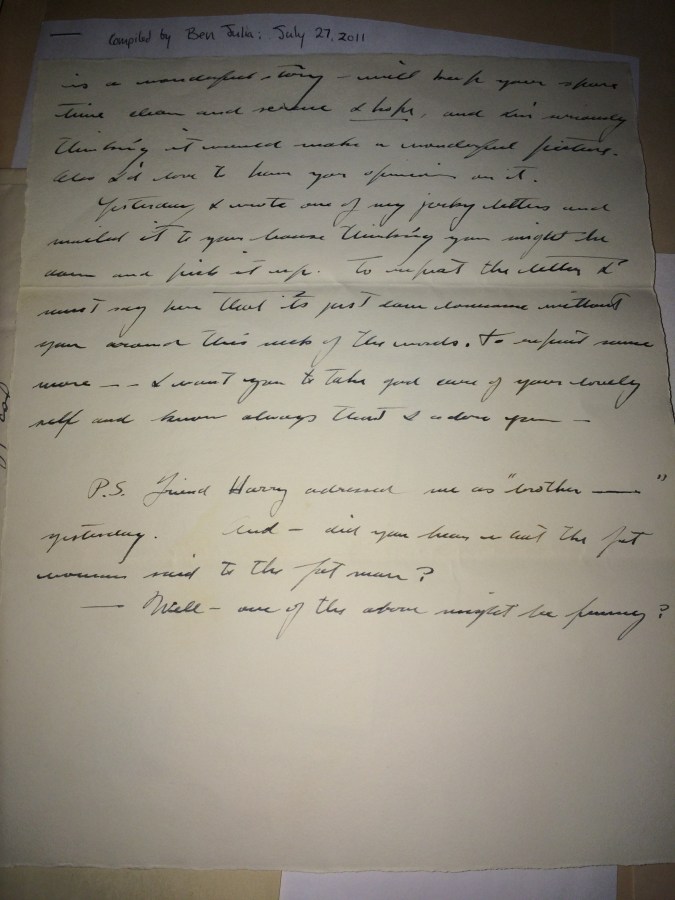 Compiled by Ben Julia: July 27, 2011
is a wonderful story – will keep your spare
time clean and serene I hope, and I'm seriously
thinking it would make a wonderful picture.
Also I'd love to have your opinion on it.
Yesterday, I wrote one of my jerky letters and
mailed it to your house thinking you might be
down and pick it up. To repeat the letter I
must say here that it's just darn lonesome without
you around this neck of the woods. To repeat some
more – – I want you to take good care of your lovely
self and know always that I adore you –
P.S. Friend Harry adressed me as "brother —"
yesterday. And – did you hear what the fat
woman said to the fat man?
— Well – one of the above might be funny?